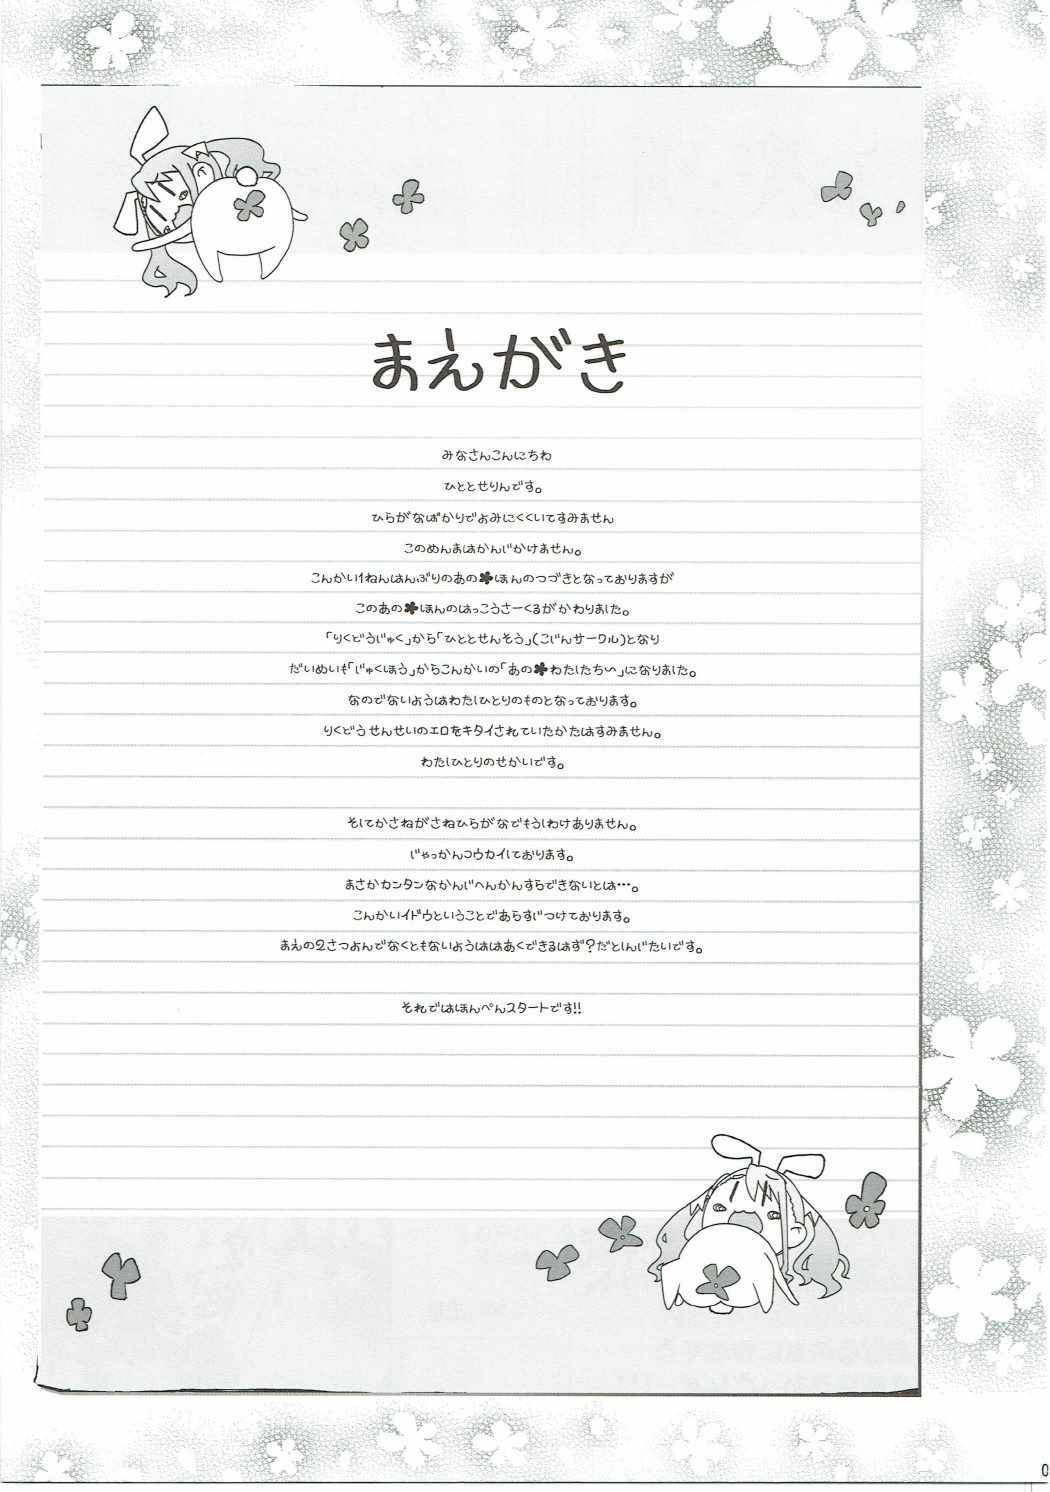 まえがき
みなさんこんにちわ
ひととせりんです。
ひらがなばかりでよみにくくいてすみません
このめんまはかんじかけません。
こんかい1ねんはんぶりのあの♣ほんのつづきとなっておりますが
このあの♣ほんのはっこうさーくるがかわりました。
「りくどうじゅく」から「ひととせんそう」(こじんサークル)となり
だいめいも「じゅくほう」からこんかいの「あの♣わたしたち〜」になりました。
なのでないようはわたしひとりのものとなっております。
りくどうせんせいのエロをキタイされていたかたはすみません。
わたしひとりのせかいです。
そしてかさねがさねひらがなでもうしわけありません。
じゃっかんコウカイしております。
まさかカンタンなかんじへんかんすらできないとは…。
こんかいイドウということであらすじつけております。
まえの2さつよんでなくともないようははあくできるはず?だとしんじたいです。
それではほんぺんスタートです!!
0